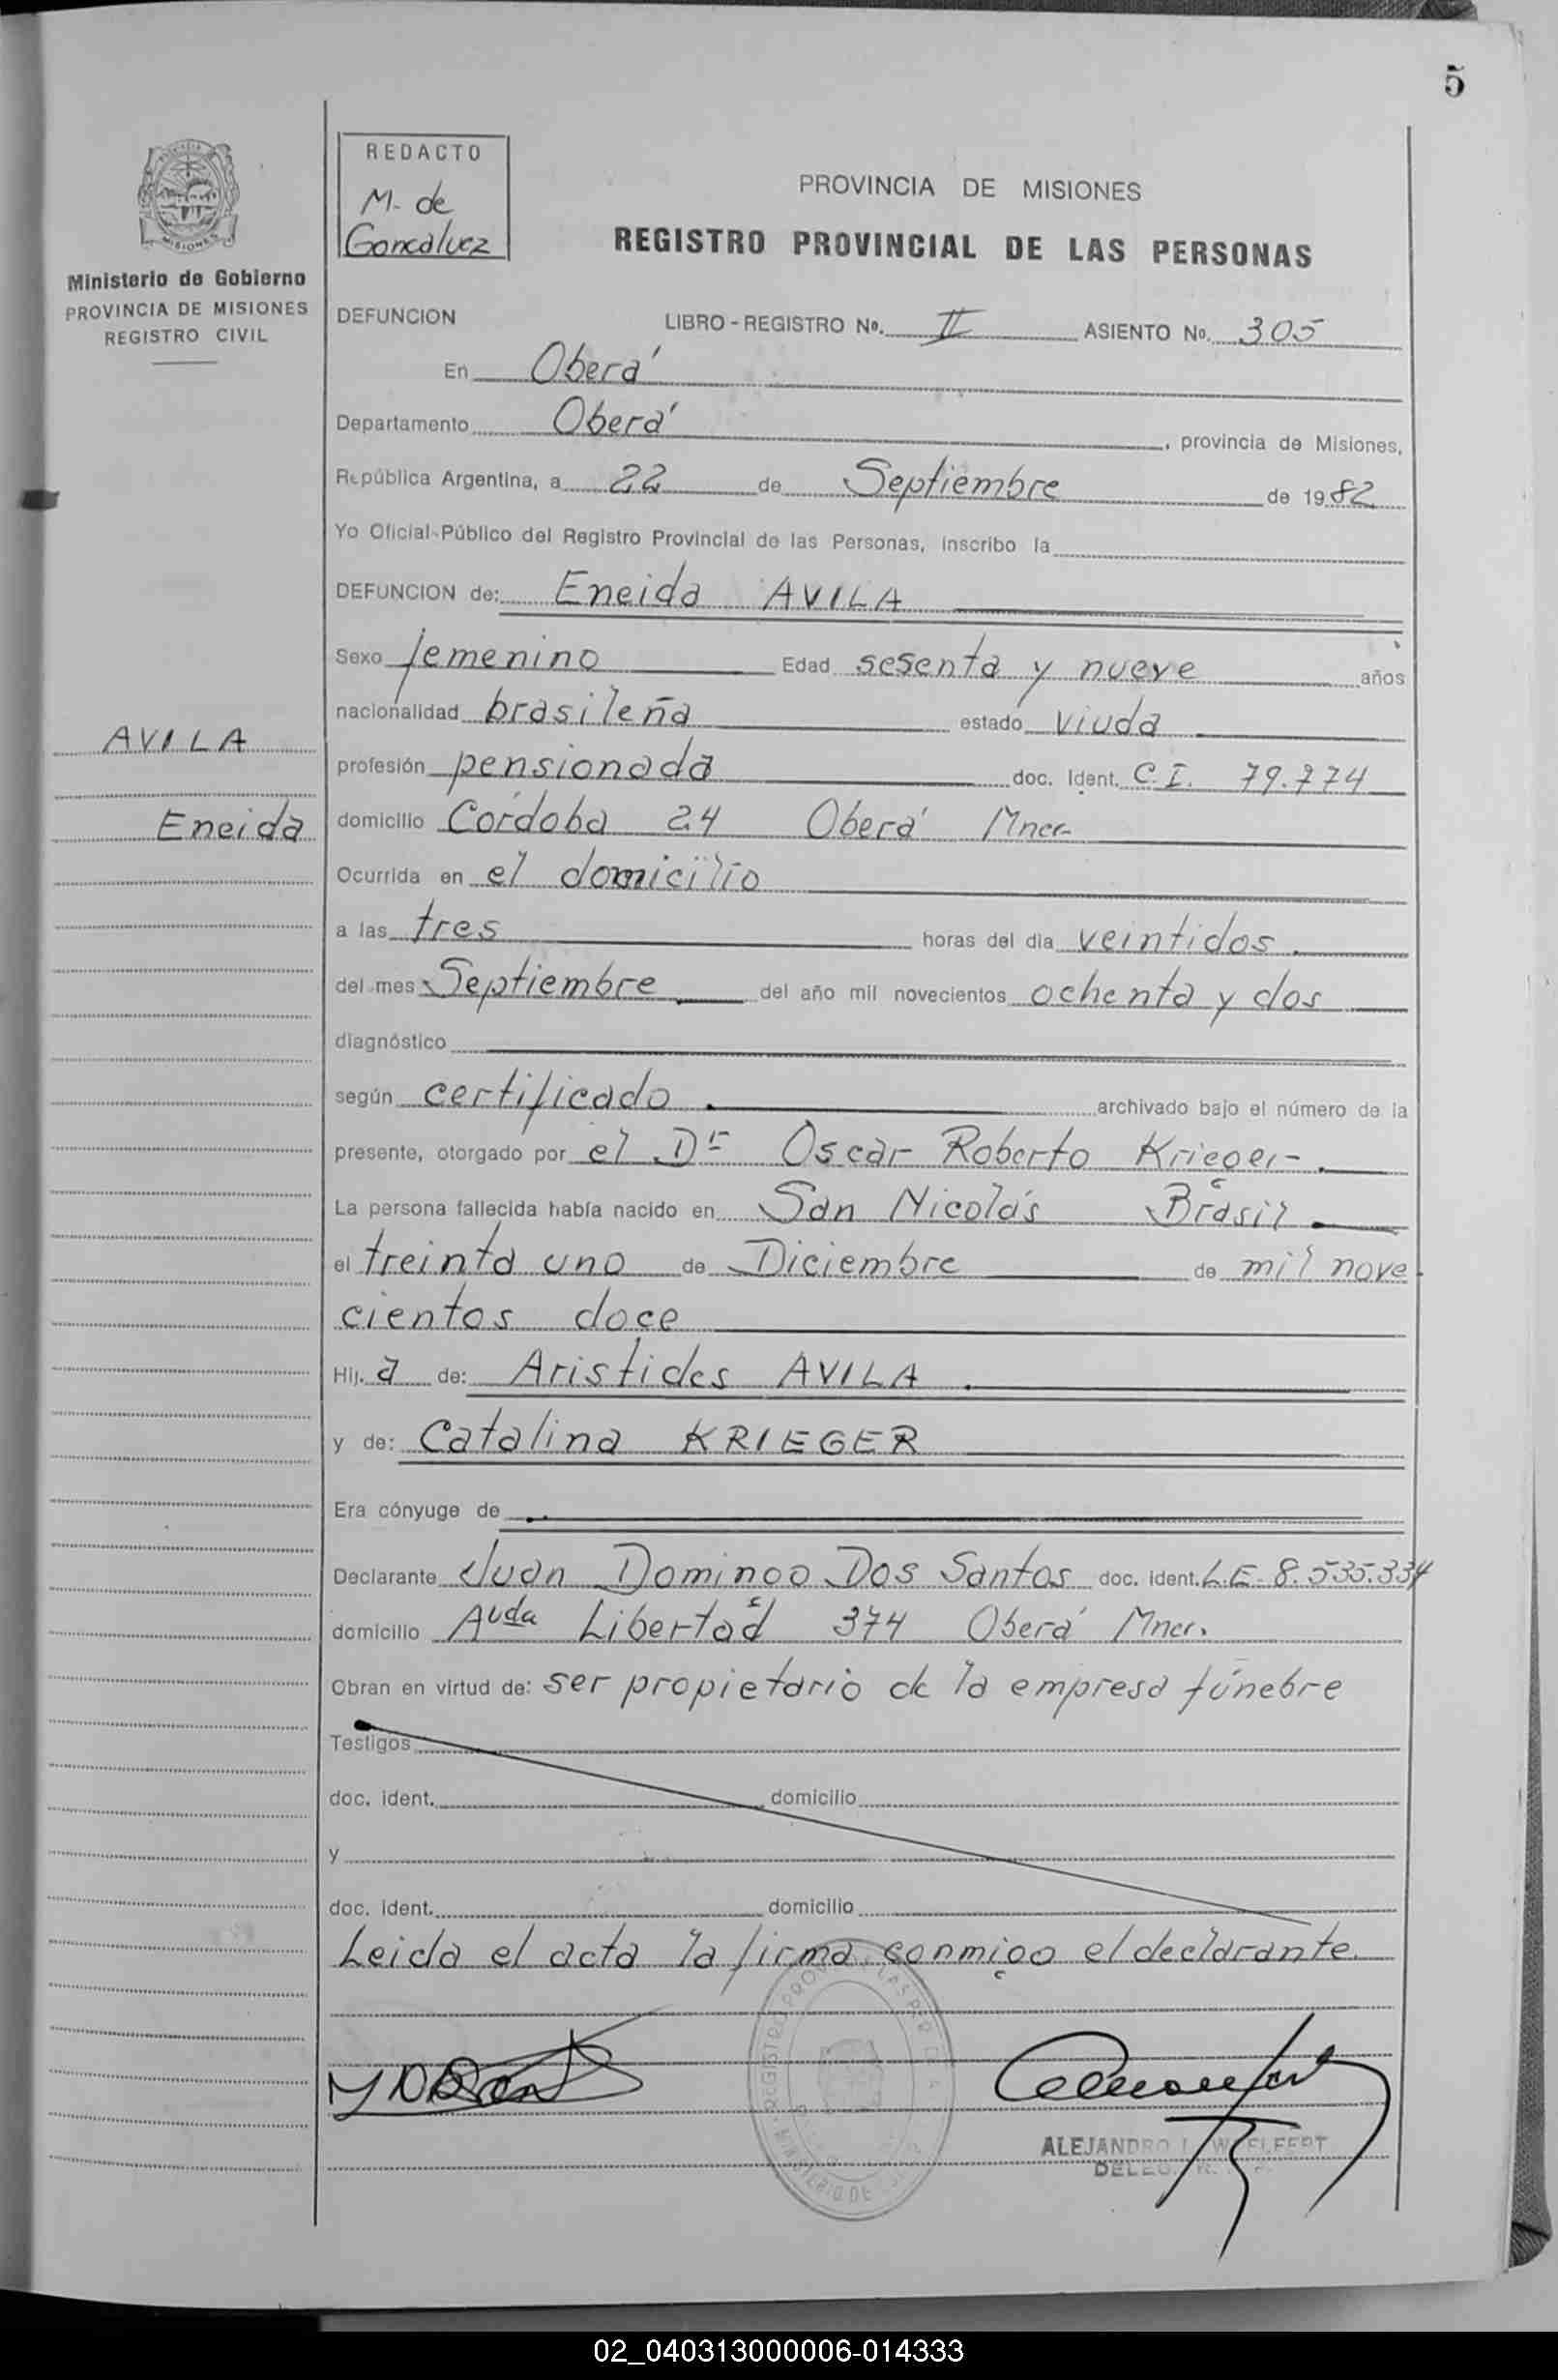 5
REDACTO
M. de
Goncalvez
MISIONES
Ministerio de Gobierno
PROVINCIA DE MISIONES
REGISTRO CIVIL
PROVINCIA DE MISIONES
REGISTRO PROVINCIAL DE LAS PERSONAS
DEFUNCION LIBRO - REGISTRO Nº. II ASIENTO No. 305
En Oberá
Departamento Oberá, provincia de Misiones,
República Argentina, a 22 de Septiembre de 1982
Yo Oficial Público del Registro Provincial de las Personas, inscribo la
DEFUNCION de: Eneida AVILA
Sexo femenino Edad sesenta y nueve años
nacionalidad brasileña estado viuda
AVILA
profesión pensionada doc. Ident. C.I. 79.774
Eneida
domicilio Córdoba 24 Oberá Mnes
Ocurrida en el domicilio
a las tres horas del dia veintidos.
del mes Septiembre del año mil novecientos ochenta y dos
diagnóstico
según certificado. archivado bajo el número de la
presente, otorgado por el Dr Oscar Roberto Krieger.
La persona fallecida había nacido en San Nicolás Brasil
el treinta uno de Diciembre de mil nove
cientos doce
Hij. a de: Aristides AVILA.
y de: Catalina KRIEGER
Era cónyuge de
Declarante Juan Domingo Dos Santos doc. ident. L.E. 8.535.334
domicilio Avda Libertad 374 Oberá Mnes.
Obran en virtud de: ser propietario de la empresa fúnebre
Testigos
doc. ident. domicilio
y
doc. ident. domicilio
Leida el acta la firma conmigo el declarante.
ALEJANDRO
02_040313000006-014333